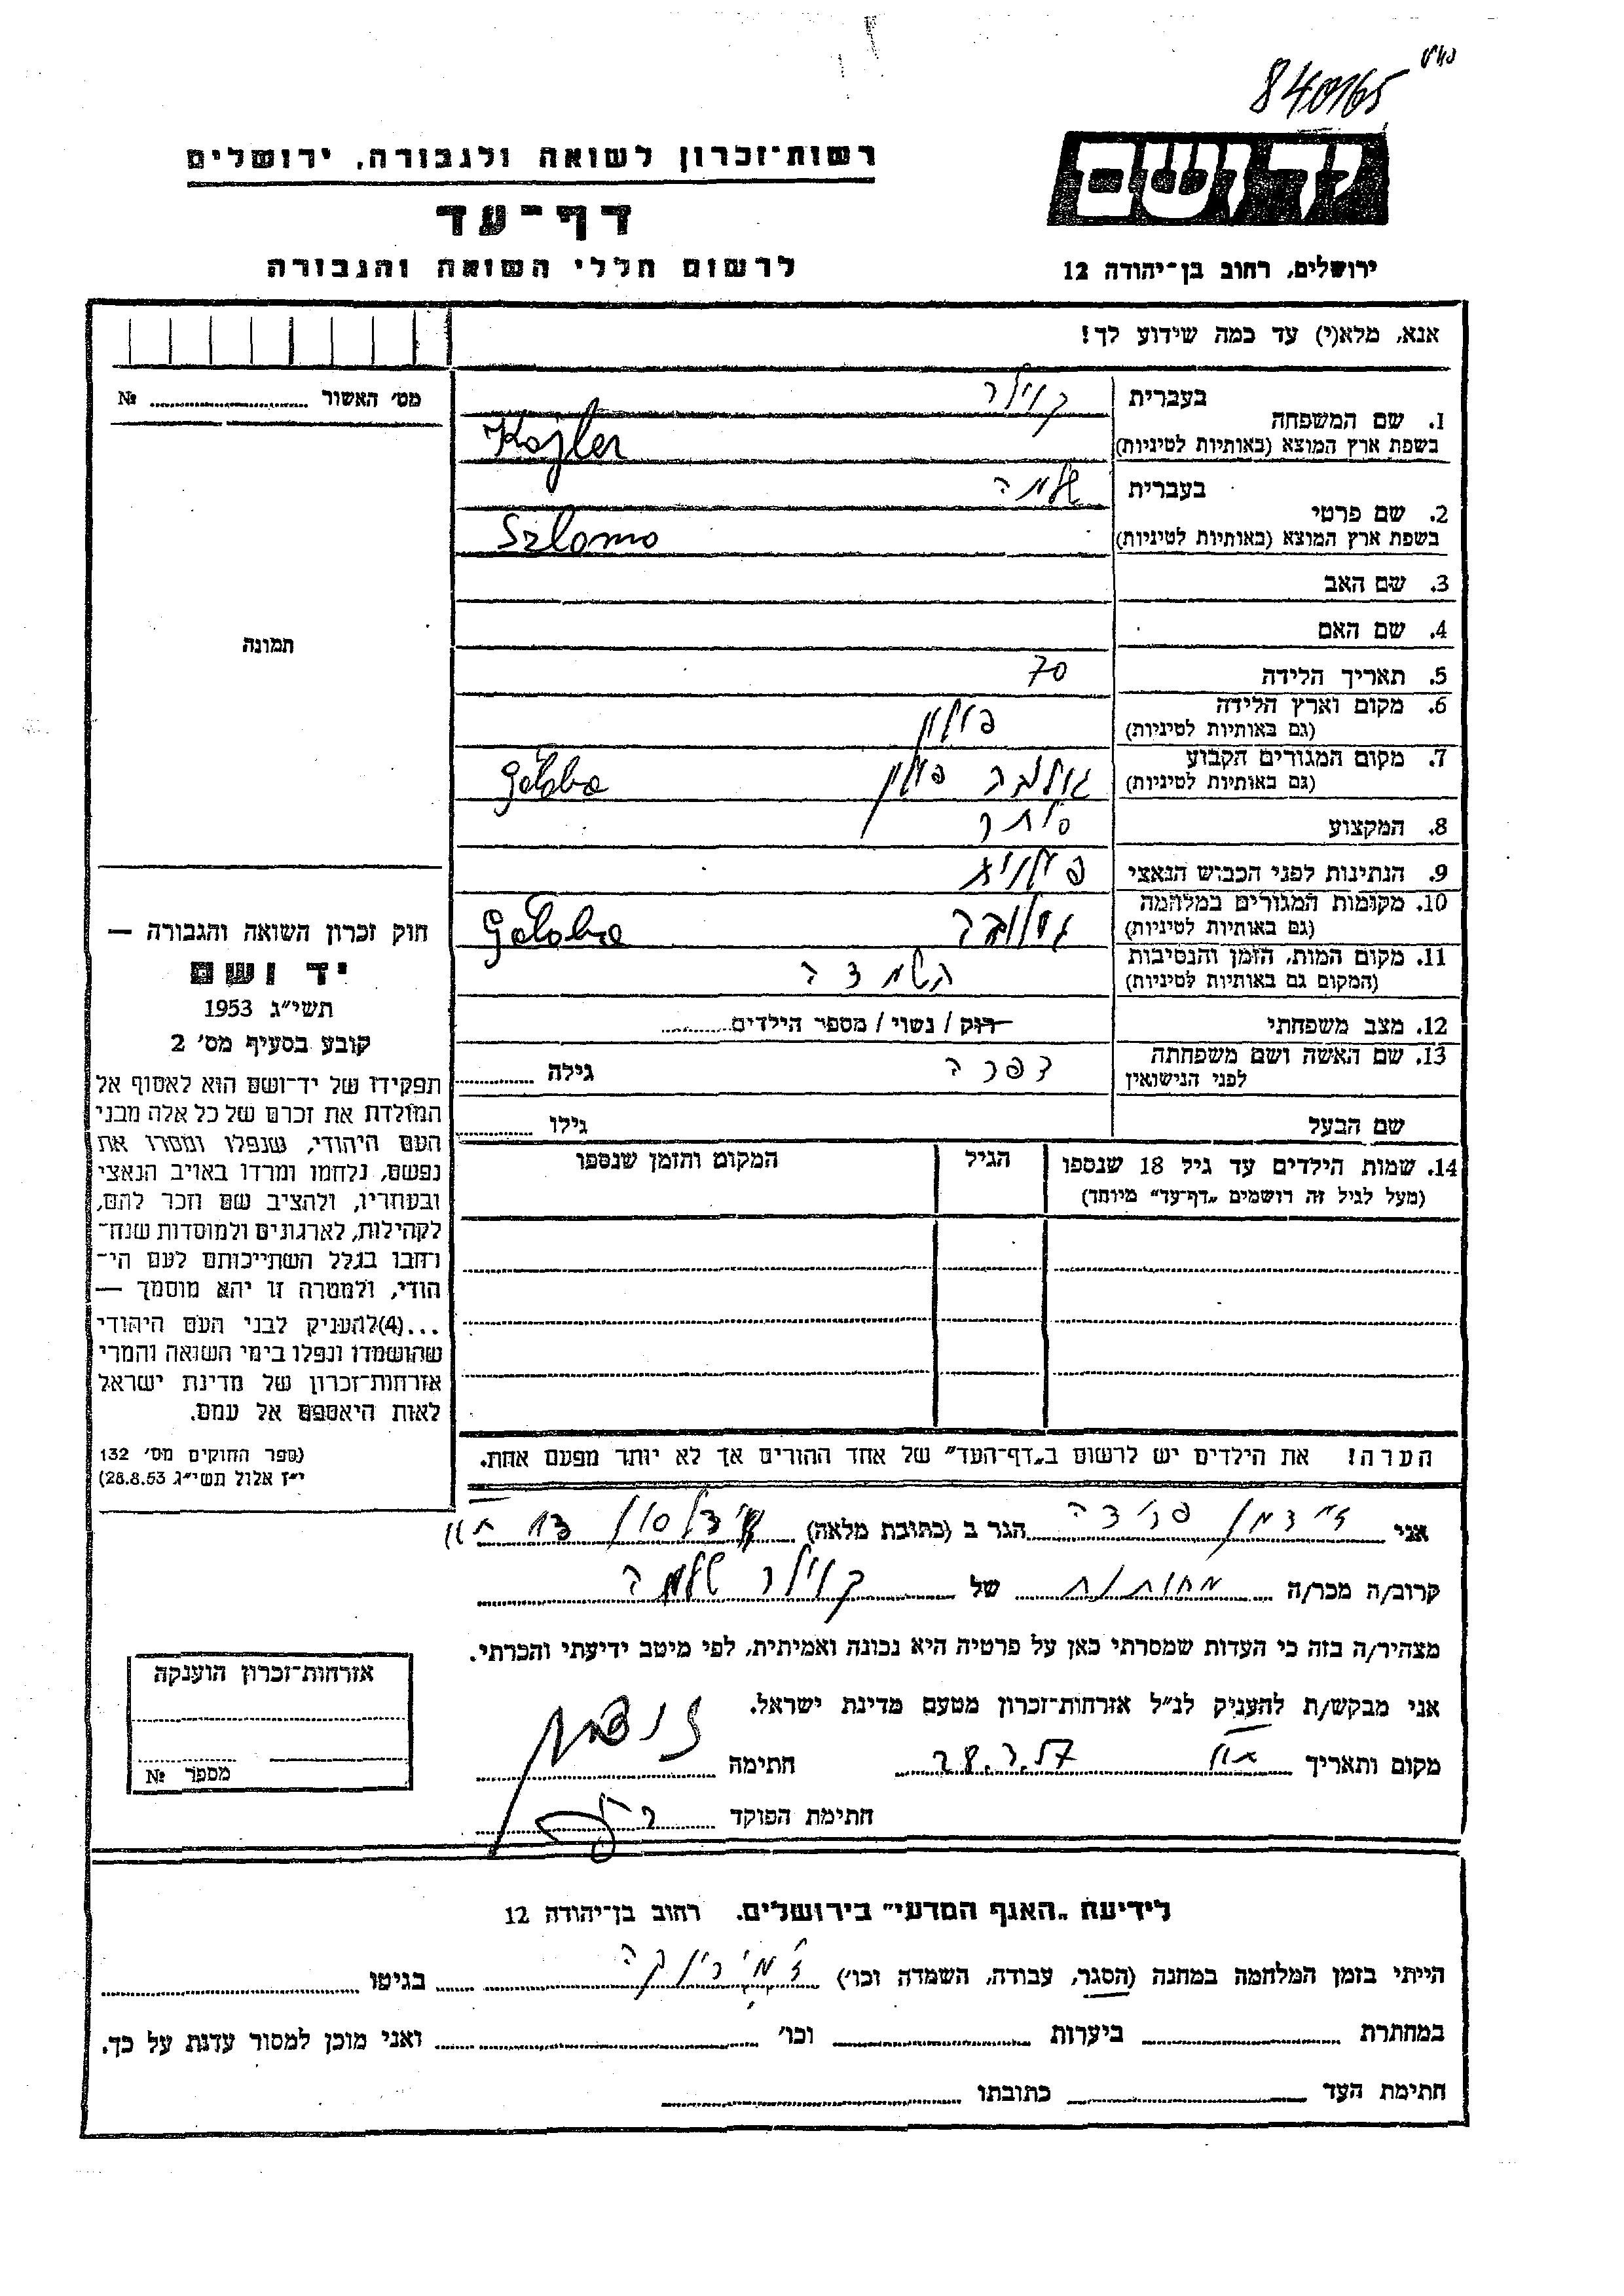 840165
רשות־זכרון לשואה ולגבורה, ירושלים
יד ושם
דף־עד
לרשום חללי השואה והגבורה
ירושלים, רחוב בן־יהודה 12
אנא, מלא(י) עד כמה שידוע לך!
מס׳ האשור № ........
1. שם המשפחה
בעברית קוילר
בשפת ארץ המוצא (באותיות לטיניות) Kojler
2. שם פרטי
בעברית שלמה
בשפת ארץ המוצא (באותיות לטיניות) Szlomo
3. שם האב
4. שם האם
תמונה
5. תאריך הלידה 70
6. מקום וארץ הלידה פולין
(גם באותיות לטיניות)
7. מקום המגורים הקבוע גולבה פולין Goloba
(גם באותיות לטיניות)
8. המקצוע סוחר
9. הנתינות לפני הכבוש הנאצי פולנית
10. מקומות המגורים במלחמה גולובה Goloba
(גם באותיות לטיניות)
11. מקום המות, הזמן והנסיבות השמדה
(המקום גם באותיות לטיניות)
12. מצב משפחתי רוק / נשוי / מספר הילדים........
13. שם האשה ושם משפחתה
לפני הנישואין דפרה גילה ........
שם הבעל גילו ........
14. שמות הילדים עד גיל 18 שנספו הגיל המקום והזמן שנספו
(מעל לגיל זה רושמים „דף־עד״ מיוחד)
הערה! את הילדים יש לרשום ב„דף־העד״ של אחד ההורים אך לא יותר מפעם אחת.
חוק זכרון השואה והגבורה —
יד ושם
תשי״ג 1953
קובע בסעיף מס׳ 2
תפקידו של יד־ושם הוא לאסוף אל
המולדת את זכרם של כל אלה מבני
העם היהודי, שנפלו ומסרו את
נפשם, נלחמו ומרדו באויב הנאצי
ובעוזריו, ולהציב שם וזכר להם,
לקהילות, לארגונים ולמוסדות שנח־
רחבו בגלל השתייכותם לעם הי־
הודי, ולמטרה זו יהא מוסמך —
...(4)להעניק לבני העם היהודי
שהושמדו ונפלו בימי השואה והמרי
אזרחות־זכרון של מדינת ישראל
לאות היאספם אל עמם.
(ספר החוקים מס׳ 132
י״ז אלול תשי״ג 28.8.53)
אני זיידמן פרידה הגר ב (כתובת מלאה)
קרוב/ה מכר/ה מחותנת של קוילר שלמה
מצהיר/ה בזה כי העדות שמסרתי כאן על פרטיה היא נכונה ואמיתית, לפי מיטב ידיעתי והכרתי.
אני מבקש/ת להעניק לנ״ל אזרחות־זכרון מטעם מדינת ישראל.
מקום ותאריך 28.2.57 חתימה
חתימת הפוקד
אזרחות־זכרון הוענקה
מספר №
לידיעת „האגף המדעי״ בירושלים. רחוב בן־יהודה 12
הייתי בזמן המלחמה במחנה (הסגר, עבודה, השמדה וכו׳) ז׳מירינקה בגיטו ........
במחתרת ........ ביערות ........ וכו׳ ........ ואני מוכן למסור עדות על כך.
חתימת העד ........ כתובתו ........